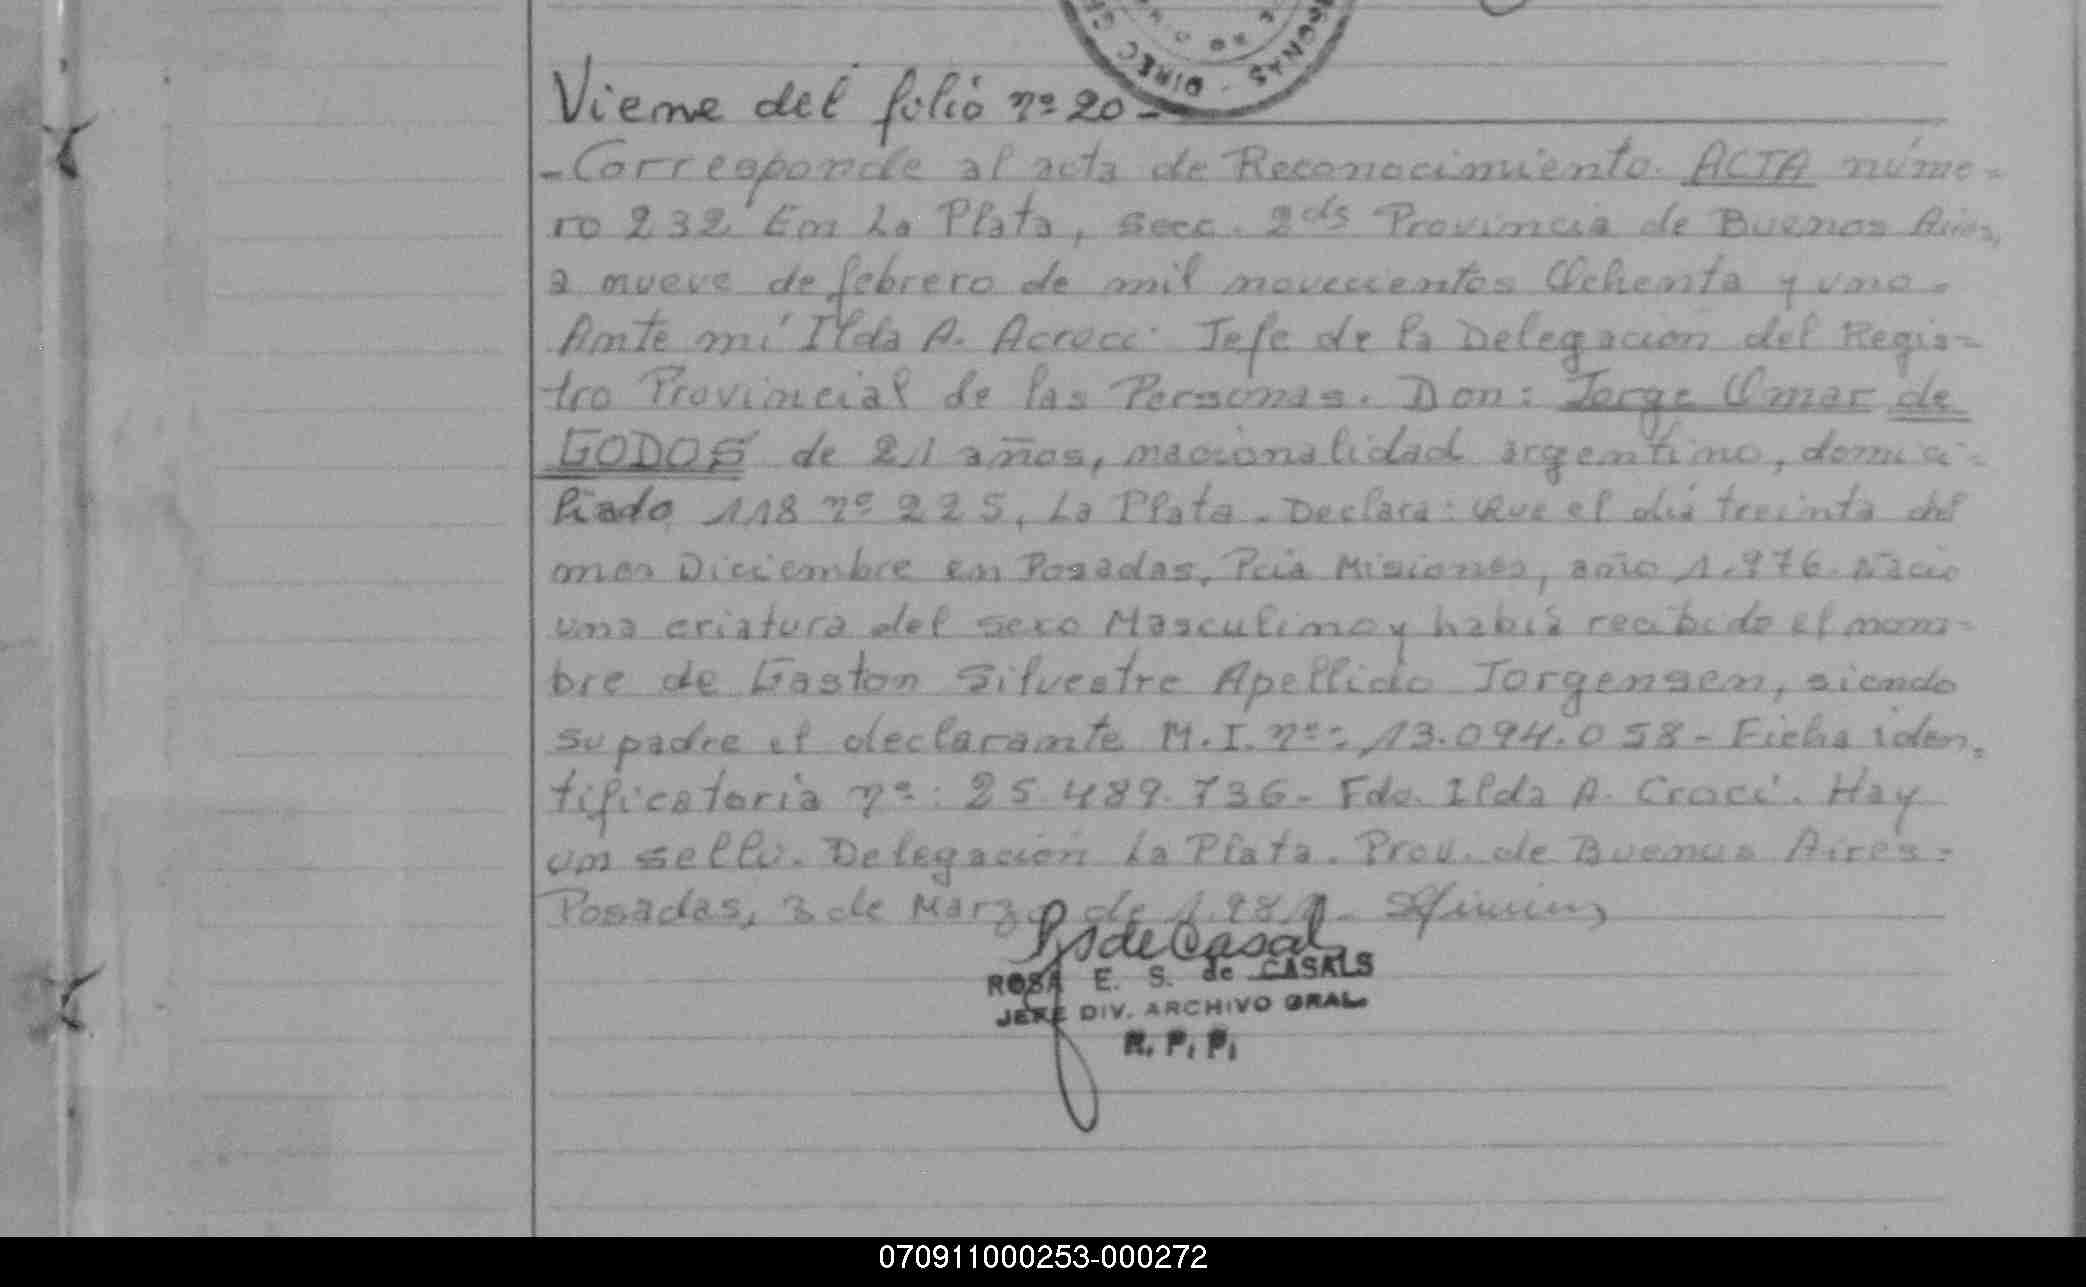 DIREC GE
PERSONAS
Viene del folio nº 20-
-Corresponde al acta de Reconocimiento. ACTA núme-
ro 232 En La Plata, Secc. 2da Provincia de Buenos Aires,
a nueve de febrero de mil novecientos Ochenta y uno-
Ante mí Ilda A. Acroci Jefe de la Delegación del Regis-
tro Provincial de las Personas. Don: Jorge Omar de
GODOS de 21 años, nacionalidad argentino, domici-
liado 118 nº 225, La Plata. Declara: Que el día treinta del
mes Diciembre en Posadas, Pcia Misiones, año 1.976. Nació
una criatura del sexo Masculino y había recibido el nom-
bre de Gaston Silvestre Apellido Jorgensen, siendo
su padre el declarante M.I. nº: 13.094.058- Ficha iden-
tificatoria nº: 25.489.736- Fdo. Ilda A. Croci. Hay
un sello. Delegación La Plata. Prov. de Buenos Aires-
Posadas, 3 de Marzo de 1.981-
de Casal
ROSA E. S. de CASALS
JEFE DIV. ARCHIVO GRAL.
R. P. P.
070911000253-000272